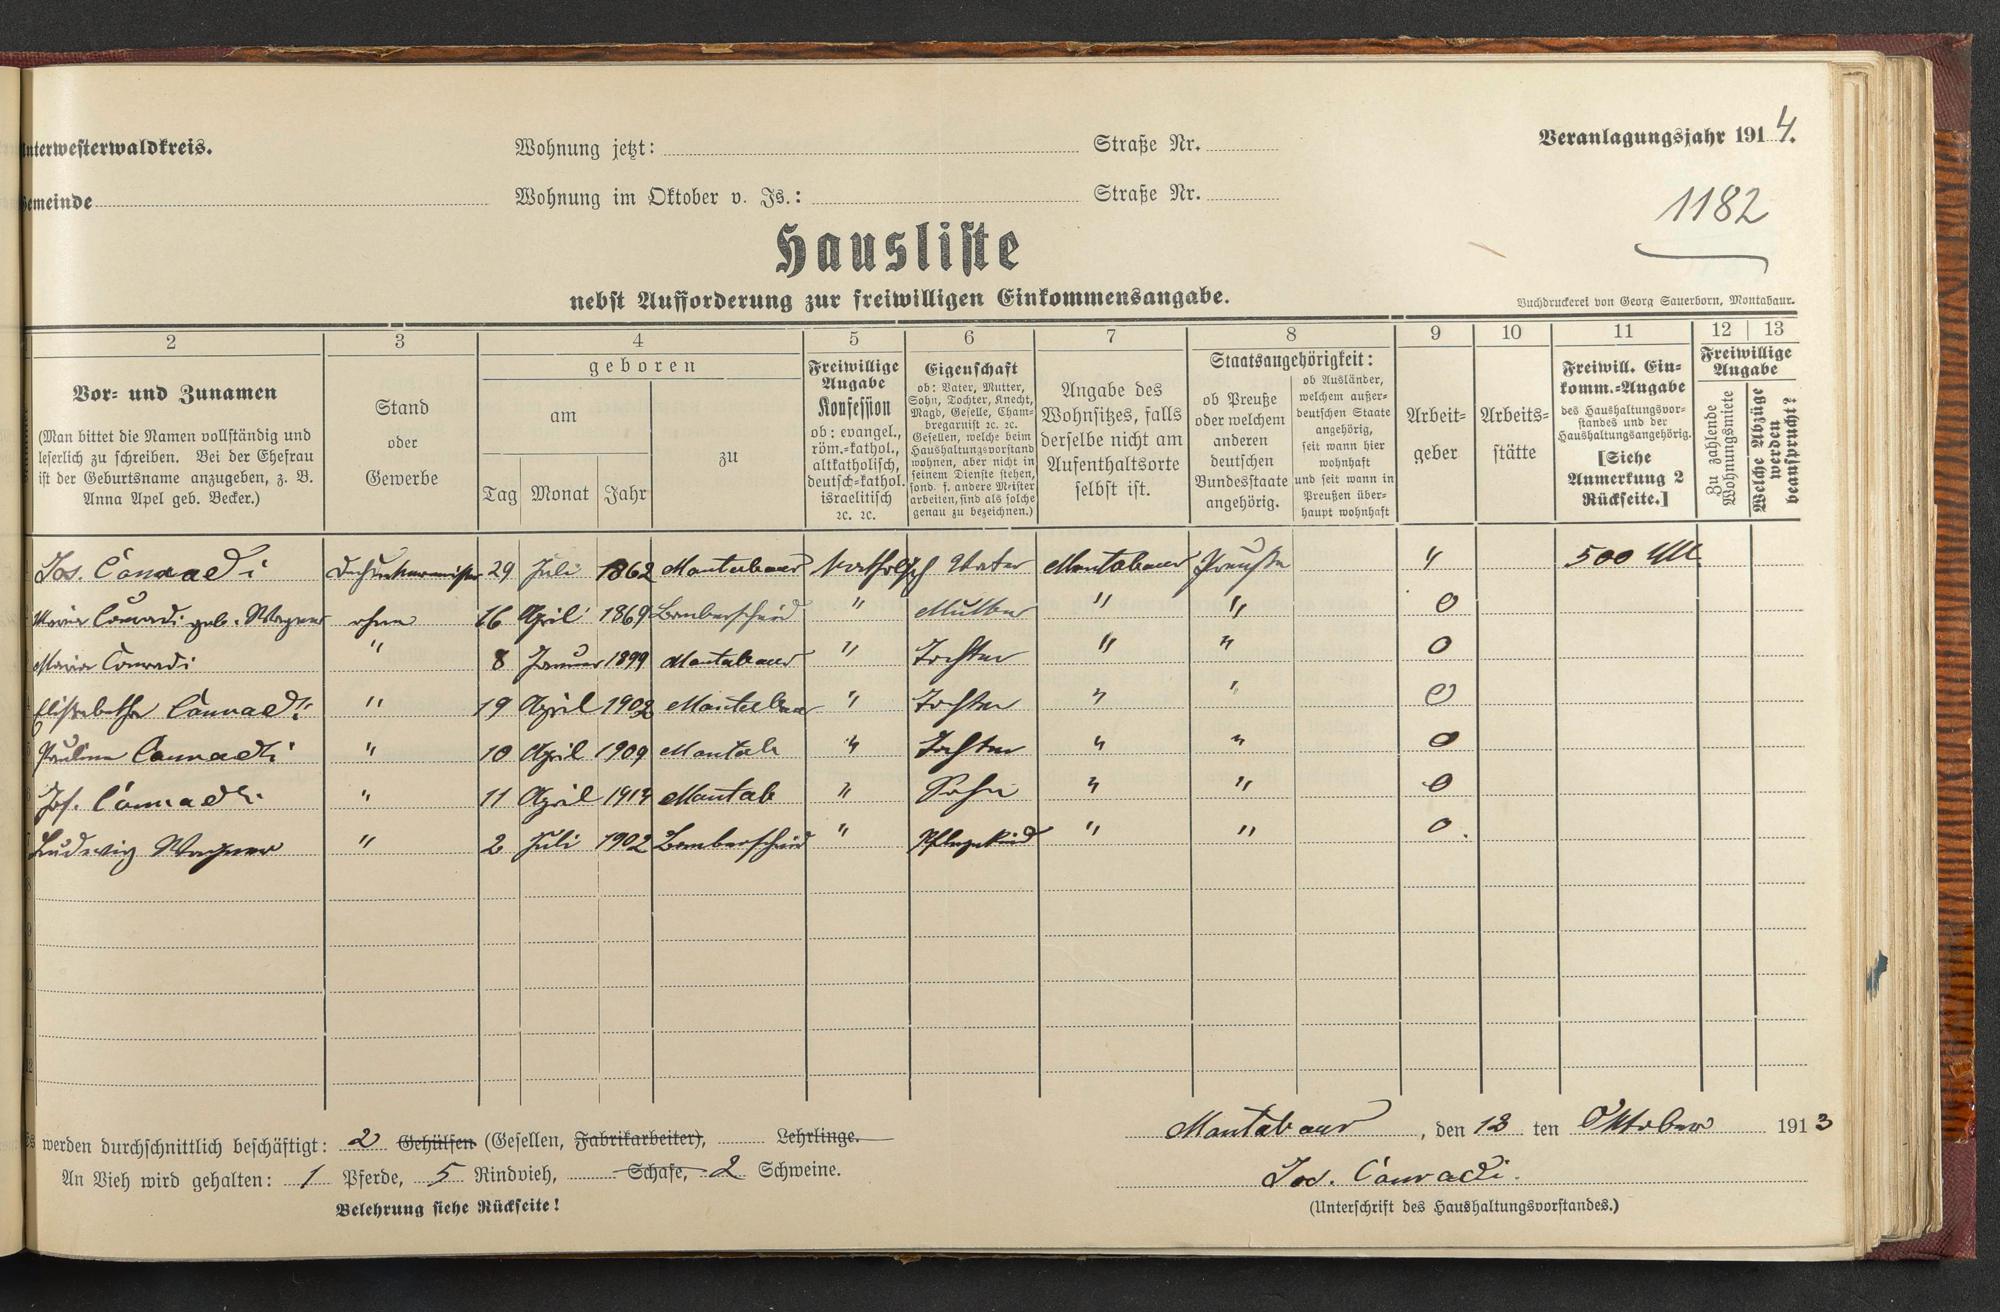 Unterwesterwaldkreis.
Wohnung jetzt: Straße Nr.
Veranlagungsjahr 1914.
Gemeinde
Wohnung im Oktober v. Js.: Straße Nr.
1182
Hausliste
nebst Aufforderung zur freiwilligen Einkommensangabe.
Buchdruckerei von Georg Sauerborn, Montabaur.
2 3 4 5 6 7 8 9 10 11 12 13
Vor- und Zunamen
(Man bittet die Namen vollständig und
leserlich zu schreiben. Bei der Ehefrau
ist der Geburtsname anzugeben, z. B.
Anna Apel geb. Becker.)
Stand
oder
Gewerbe
geboren
am
Tag Monat Jahr
zu
Freiwillige
Angabe
Konfession
ob: evangel.,
röm.-kathol.,
altkatholisch,
deutsch-kathol.
israelitisch
ꝛc. ꝛc.
Eigenschaft
ob: Vater, Mutter,
Sohn, Tochter, Knecht,
Magd, Geselle, Cham-
bregarnist ꝛc. ꝛc.
Gesellen, welche beim
Haushaltungsvorstand
wohnen, aber nicht in
seinem Dienste stehen,
sond. f. andere Meister
arbeiten, sind als solche
genau zu bezeichnen.)
Angabe des
Wohnsitzes, falls
derselbe nicht am
Aufenthaltsorte
selbst ist.
Staatsangehörigkeit:
ob Preuße
oder welchem
anderen
deutschen
Bundesstaate
angehörig.
ob Ausländer,
welchem außer-
deutschen Staate
angehörig,
seit wann hier
wohnhaft
und seit wann in
Preußen über-
haupt wohnhaft
Arbeit-
geber
Arbeits-
stätte
Freiwill. Ein-
komm.-Angabe
des Haushaltungsvor-
standes und der
Haushaltungsangehörig.
[Siehe
Anmerkung 2
Rückseite.]
Freiwillige
Angabe
Zu zahlende
Wohnungsmiete
Welche Abzüge
werden
beansprucht?
Jos. Conradi 29 Juli 1862 Montabaur Katholisch Vater Montabaur Preuße " 500 Mk
Maria Conradi geb. Wagner ohne 16 April 1869 " Mutter " " 0
Maria Conradi " 8 Januar 1899 Montabaur " Tochter " " 0
Elisabetha Conradi " 19 April 1902 Montabaur " Tochter " " 0
Paulina Conradi " 10 April 1909 Montab " Tochter " " 0
Jos. Conradi " 11 April Montab " Sohn " " 0
Ludwig Wagner " 2 Juli 1902 " Pflegekind " " 0
8
9
10
11
12
Es werden durchschnittlich beschäftigt: 2 Gehülfen (Gesellen, Fabrikarbeiter), Lehrlinge.
An Vieh wird gehalten: 1 Pferde, 5 Rindvieh, Schafe, 2 Schweine.
Belehrung siehe Rückseite!
Montabaur, den 13 ten Oktober 1913
Jos. Conradi.
(Unterschrift des Haushaltungsvorstandes.)